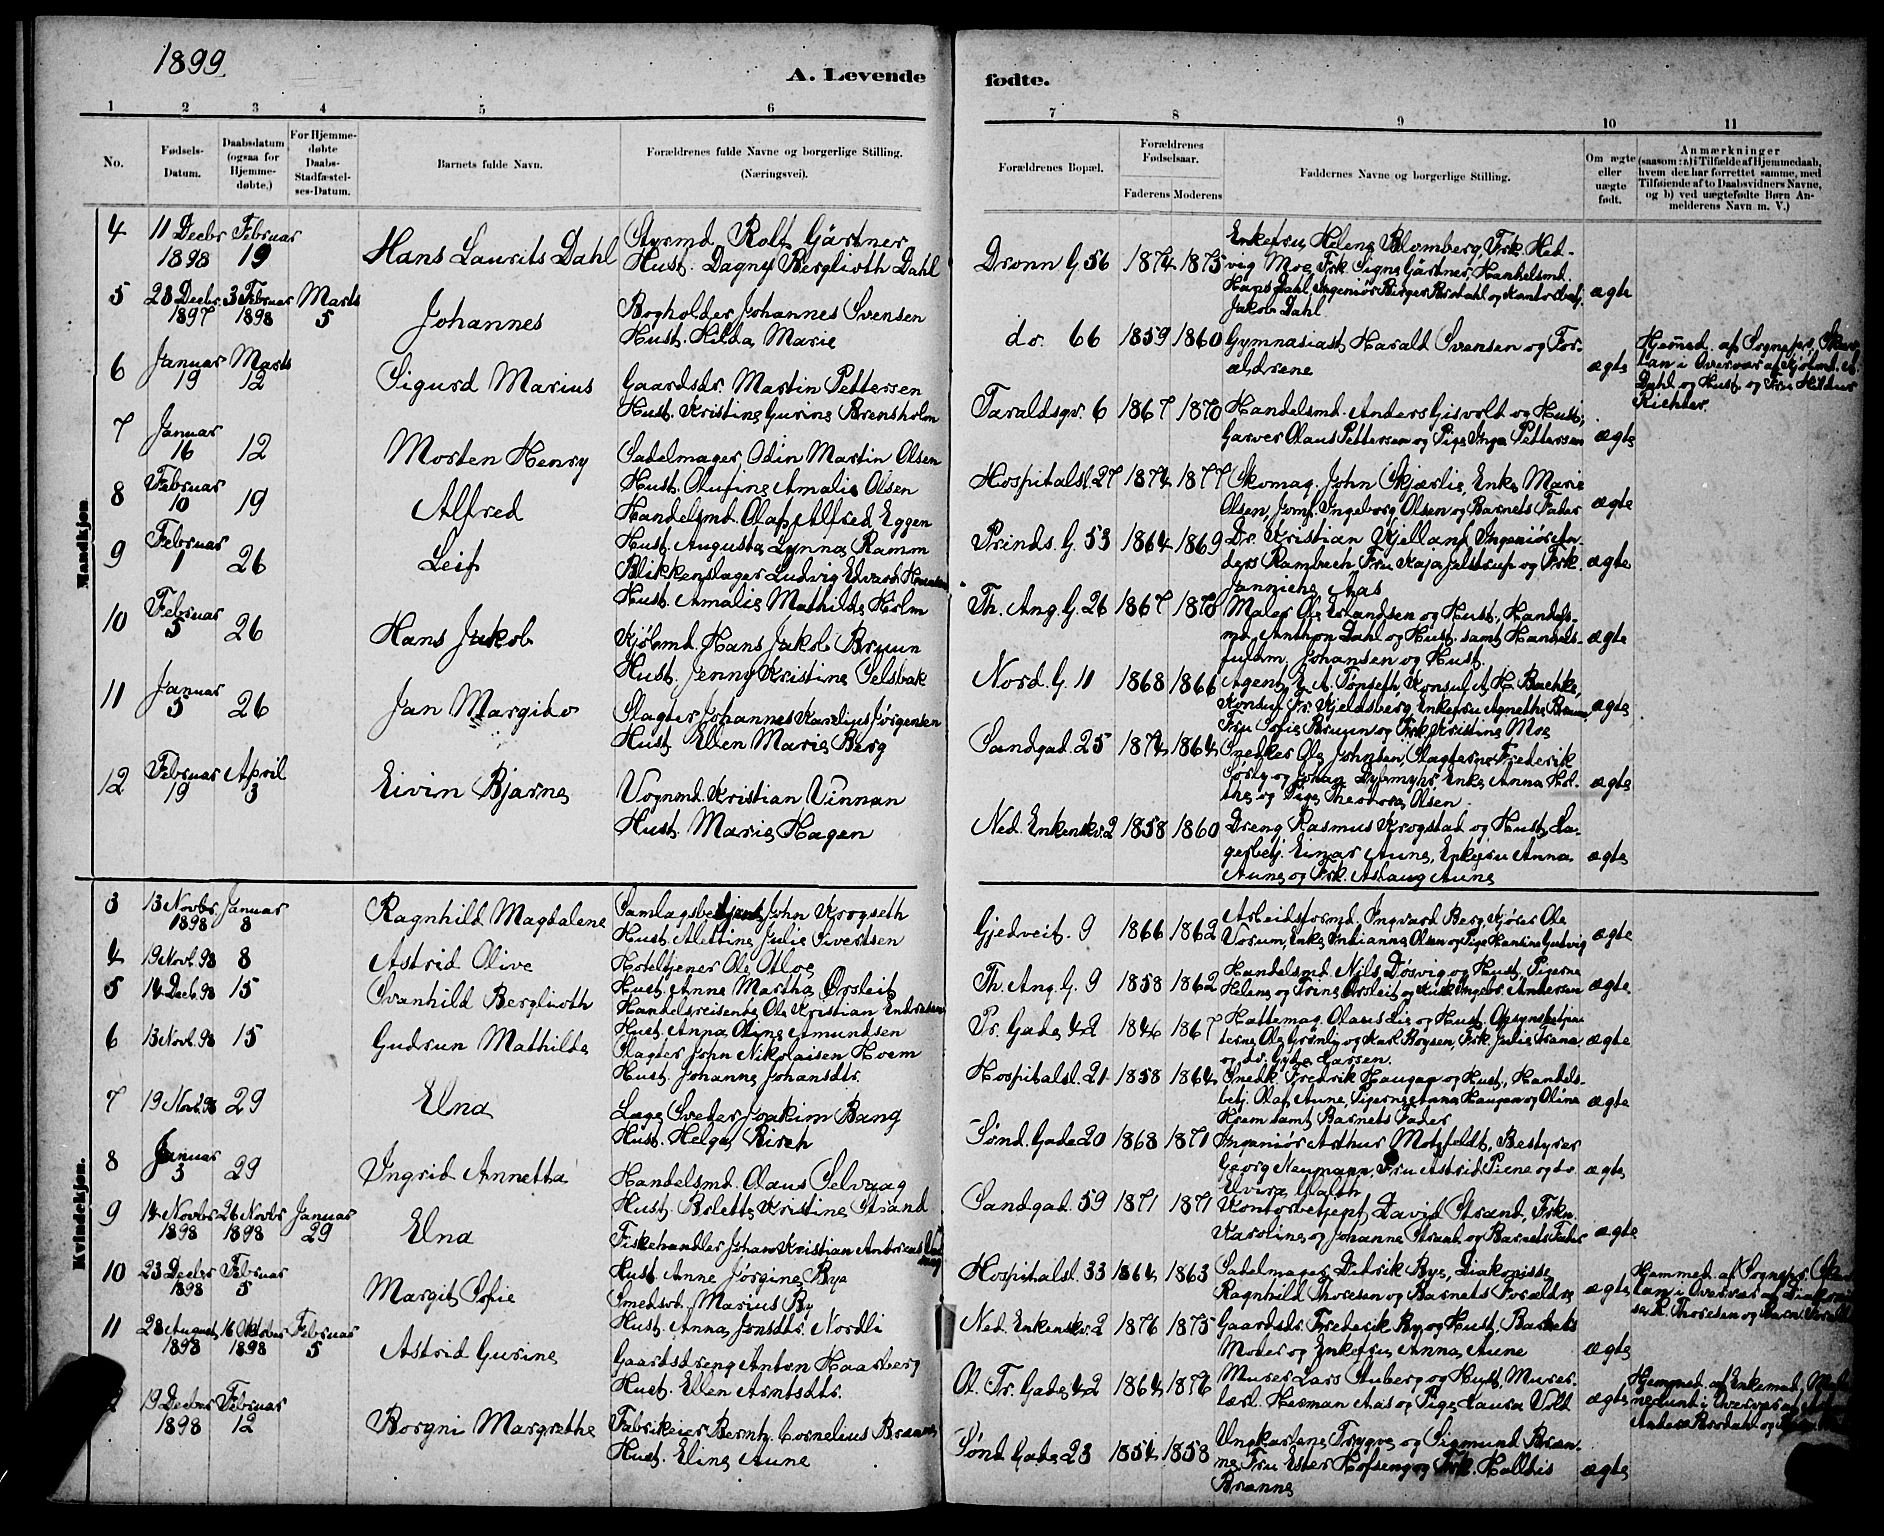 1899
A. Levende
fødte.
1 2 3 4 5 6
7 8 9 10 11
No.
Fødsels-
Datum.
Daabsdatum
(ogsaa for
Hjemme-
døbte.)
For Hjemme-
døbte
Daabs-
Stadfæstel-
ses-Datum.
Barnets fulde Navn.
Forældrenes fulde Navne og borgerlige Stilling.
(Næringsvei).
Forældrenes Bopæl.
Forældrenes
Fødselsaar.
Faderens Moderens
Faddernes Navne og borgerlige Stilling.
Om ægte
eller
uægte
født.
Anmærkninger
(saasom: a) i Tilfælde af Hjemmedaab,
hvem der har forrettet samme, med
Tilføiende af to Daabsvidners Navne,
og b) ved uægtefødte Børn An-
melderens Navn m. V.)
Mandkjøn
4 11 Decbr 1898 Februar 19
Hans Laurits Dahl
Styrmd. Rolf Gärtner
Hust. Dagny Berglioth Dahl
Dronn G 56 1874 1875
Enkefru Helene Blomberg, Frk. Hed-
vig Moe, Frk. Signe Gärtner, Handelsmd.
Hans Dahl, Ingeniør Birger
Jakob Dahl
ægte
5 28 Decbr 1897 3 Februar 1898 Marts 5
Johannes
Bogholder Johannes Svensen
Hust. Hilda Marie
do. 66 1859 1860
Gymnasiast Harald Svensen og For-
ældrene
ægte
Hjemmed. af Sognepr.
i Overvær af Kjøbmd. A.
Dahl og Hust. og Fru Hildur
Richter.
6 Januar 19 Marts 12
Sigurd Marius
Gaardsdr. Martin Pettersen
Hust. Kristine Gurine Brensholm
Taraldsgv. 6 1867 1870
Handelsmd. Anders Gisvold og Hust.,
Garver Olaus Pettersen og Pige Inga Pettersen
ægte
7 Januar 16 12
Morten Henry
Sadelmager Odin Martin Olsen
Hust. Rufine Amalie Olsen
Hospitalsl. 27 1874 1877
Skomag. John Skjærlie, Enke Marie
Olsen, Jomf. Ingeborg Olsen og Barnets Fader
ægte
8 Februar 10 19
Alfred
Handelsmd. Olaf Alfred Eggen
Hust. Augusta Lynna Ramm
Prinds. G. 53 1864 1869
Dr. Kristian Kjelland, Ingeniør
Rambech, Fru Kaja Jelstrup og Frk.
Jannicke Aas
ægte
9 Februar 1 26
Leif
Blikkenslager Ludvig Edvard Hansen
Hust. Amalie Mathilde Holm
Th. Ang. G. 26 1867 1870
Maler Ole Erlandsen og Hust., Handels-
md. Anthon Dahl og Hust. samt Handels-
fuldm. Johansen og Hust.
ægte
10 Februar 5 26
Hans Jakob
Kjøbmd. Hans Jakob Bruun
Hust. Jenny Kristine Selsbak
Nord. G. 11 1868 1866
Agent E. A. Tønseth, Konsul A. H. Bachke,
Konsul Fr. Kjeldsberg, Enkefru Agnethe Bruun,
Fru Sofie Bruun og Frk. Kristine Moe
ægte
11 Januar 3 26
Jan Margido
Slagter Johannes Karelius Jørgensen
Hust. Ellen Marie Berg
Sandgad. 25 1874 1864
Snedker Ole Johnsen, Slagterne Frederik
Sørly og Johan Dybmyhr, Enke Anna Hol-
the og Pige Theodora Olsen.
ægte
12 Februar 19 April 3
Eivin Bjarne
Vognmd. Kristian Vinnan
Hust. Marie Hagen
Ned. Enkenskr. 2 1858 1860
Dreng Rasmus Krogstad og Hust., La-
gerbetj. Einar Aune, Enkefru Anna
Aune og Frk. Aslaug Aune
ægte
Kvindekjøn.
3 13 Novbr. 1898 Januar 8
Ragnhild Magdalene
Samlagsbetjent John Krogseth
Hust. Alettine Julie Sivertsen
Gjedveit. 9 1866 1862
Arbeidsformd. Ingvard Berg, Kjører Ole
Vorum, Enke Olsen og Pige
ægte
4 19 Novb. 98 8
Astrid Olive
Hoteltjener Ole Moe
Hust. Anne Martha Ørsleit
Th. Ang. G. 9 1858 1862
Handelsmd. Nils Døsvig og Hust., Pigerne
Helene og Trine Ørsleit og Ingebr. Andersen
ægte
5 14 Decb. 98 15
Svanhild Berglioth
Handelsreisende Ole Kristian Endresen
Hust. Anna Oline Amundsen
Pr. Gade 42 1846 1867
Hattemag. Olaus Lie og Hust., Opsynsbetjen-
terne Ole Grønly og Karl Boysen, Frk. Julie
og do. Gyda Larsen.
ægte
6 13 Novb. 98 15
Gudrun Mathilde
Slagter John Nikolaisen Hoem
Hust. Johanne Johansdtr.
Hospitalsl. 21 1858 1864
Snedk. Fredrik Haugan og Hust., Handels-
betj. Olaf Aune, Pigerne Anna Haugan og Oline
Hoem samt Barnets Fader
ægte
7 19 Novb. 98 29
Elna
Læge Sveder Joakim Bang
Hust. Helga Birch
Sønd. Gade 20 1868 1871
Ingeniør Arthur Motzfeldt, Bestyrer
Georg Neumann, Fru Astrid Piene og do.
Elvira
ægte
8 Januar 3 29
Ingrid Annetta
Handelsmd. Olaus Selvaag
Hust. Bolette Kristine Strand
Sandgad. 59 1871 1871
Kontorbetjent David Strand, Frkn.
Karoline og Johanne Strand og Barnets Fader
ægte
9 14 Novbr 1898 26 Novbr 1898 Januar 29
Elna
Fiskehandler Johan Kristian Andreas
Hust. Anne Jørgine Bye
Hospitalsl. 33 1864 1863
Sadelmager Didrik Bye, Diakonisse
Ragnhild Thoresen og Barnets Forældre
ægte
Hjemmed. af Sognepr.
i Overvær af Diakonis-
se R. Thoresen og Barn. Forældre
10 23 Decbr 1898 Februar 5
Margit Sofie
Smedsvd. Marius By
Hust. Anna Jonsdtr. Nordli
Ned. Enkenskr. 2 1876 1875
Gaardsdr. Frederik By og Hust., Barnets
Moder og Enkefru Anna Aune
ægte
11 28 August 1898 16 Oktober 1898 Februar 5
Astrid Gurine
Gaardsdreng Anton Haarberg
Hust. Ellen Arntsdtr.
Ol. Tr. Gade 42 1864 1876
Murer Lars Auberg og Hust., Murer-
lærl. Herman Aas og Pige Laura Vold
ægte
Hjemmed. af Enkemad.
i Overvær af
19 Decbr 1898 Februar 12
Borgni Margrethe
Fabrikeier Bernh. Cornelius Brænne
Hust. Eline Aune
Sønd. Gade 23 1854 1858
Ungkarlene Trygve og Sigmund Bræn-
ne, Fru Ester Hofseng og Frk. Halldis
Brænne
ægte